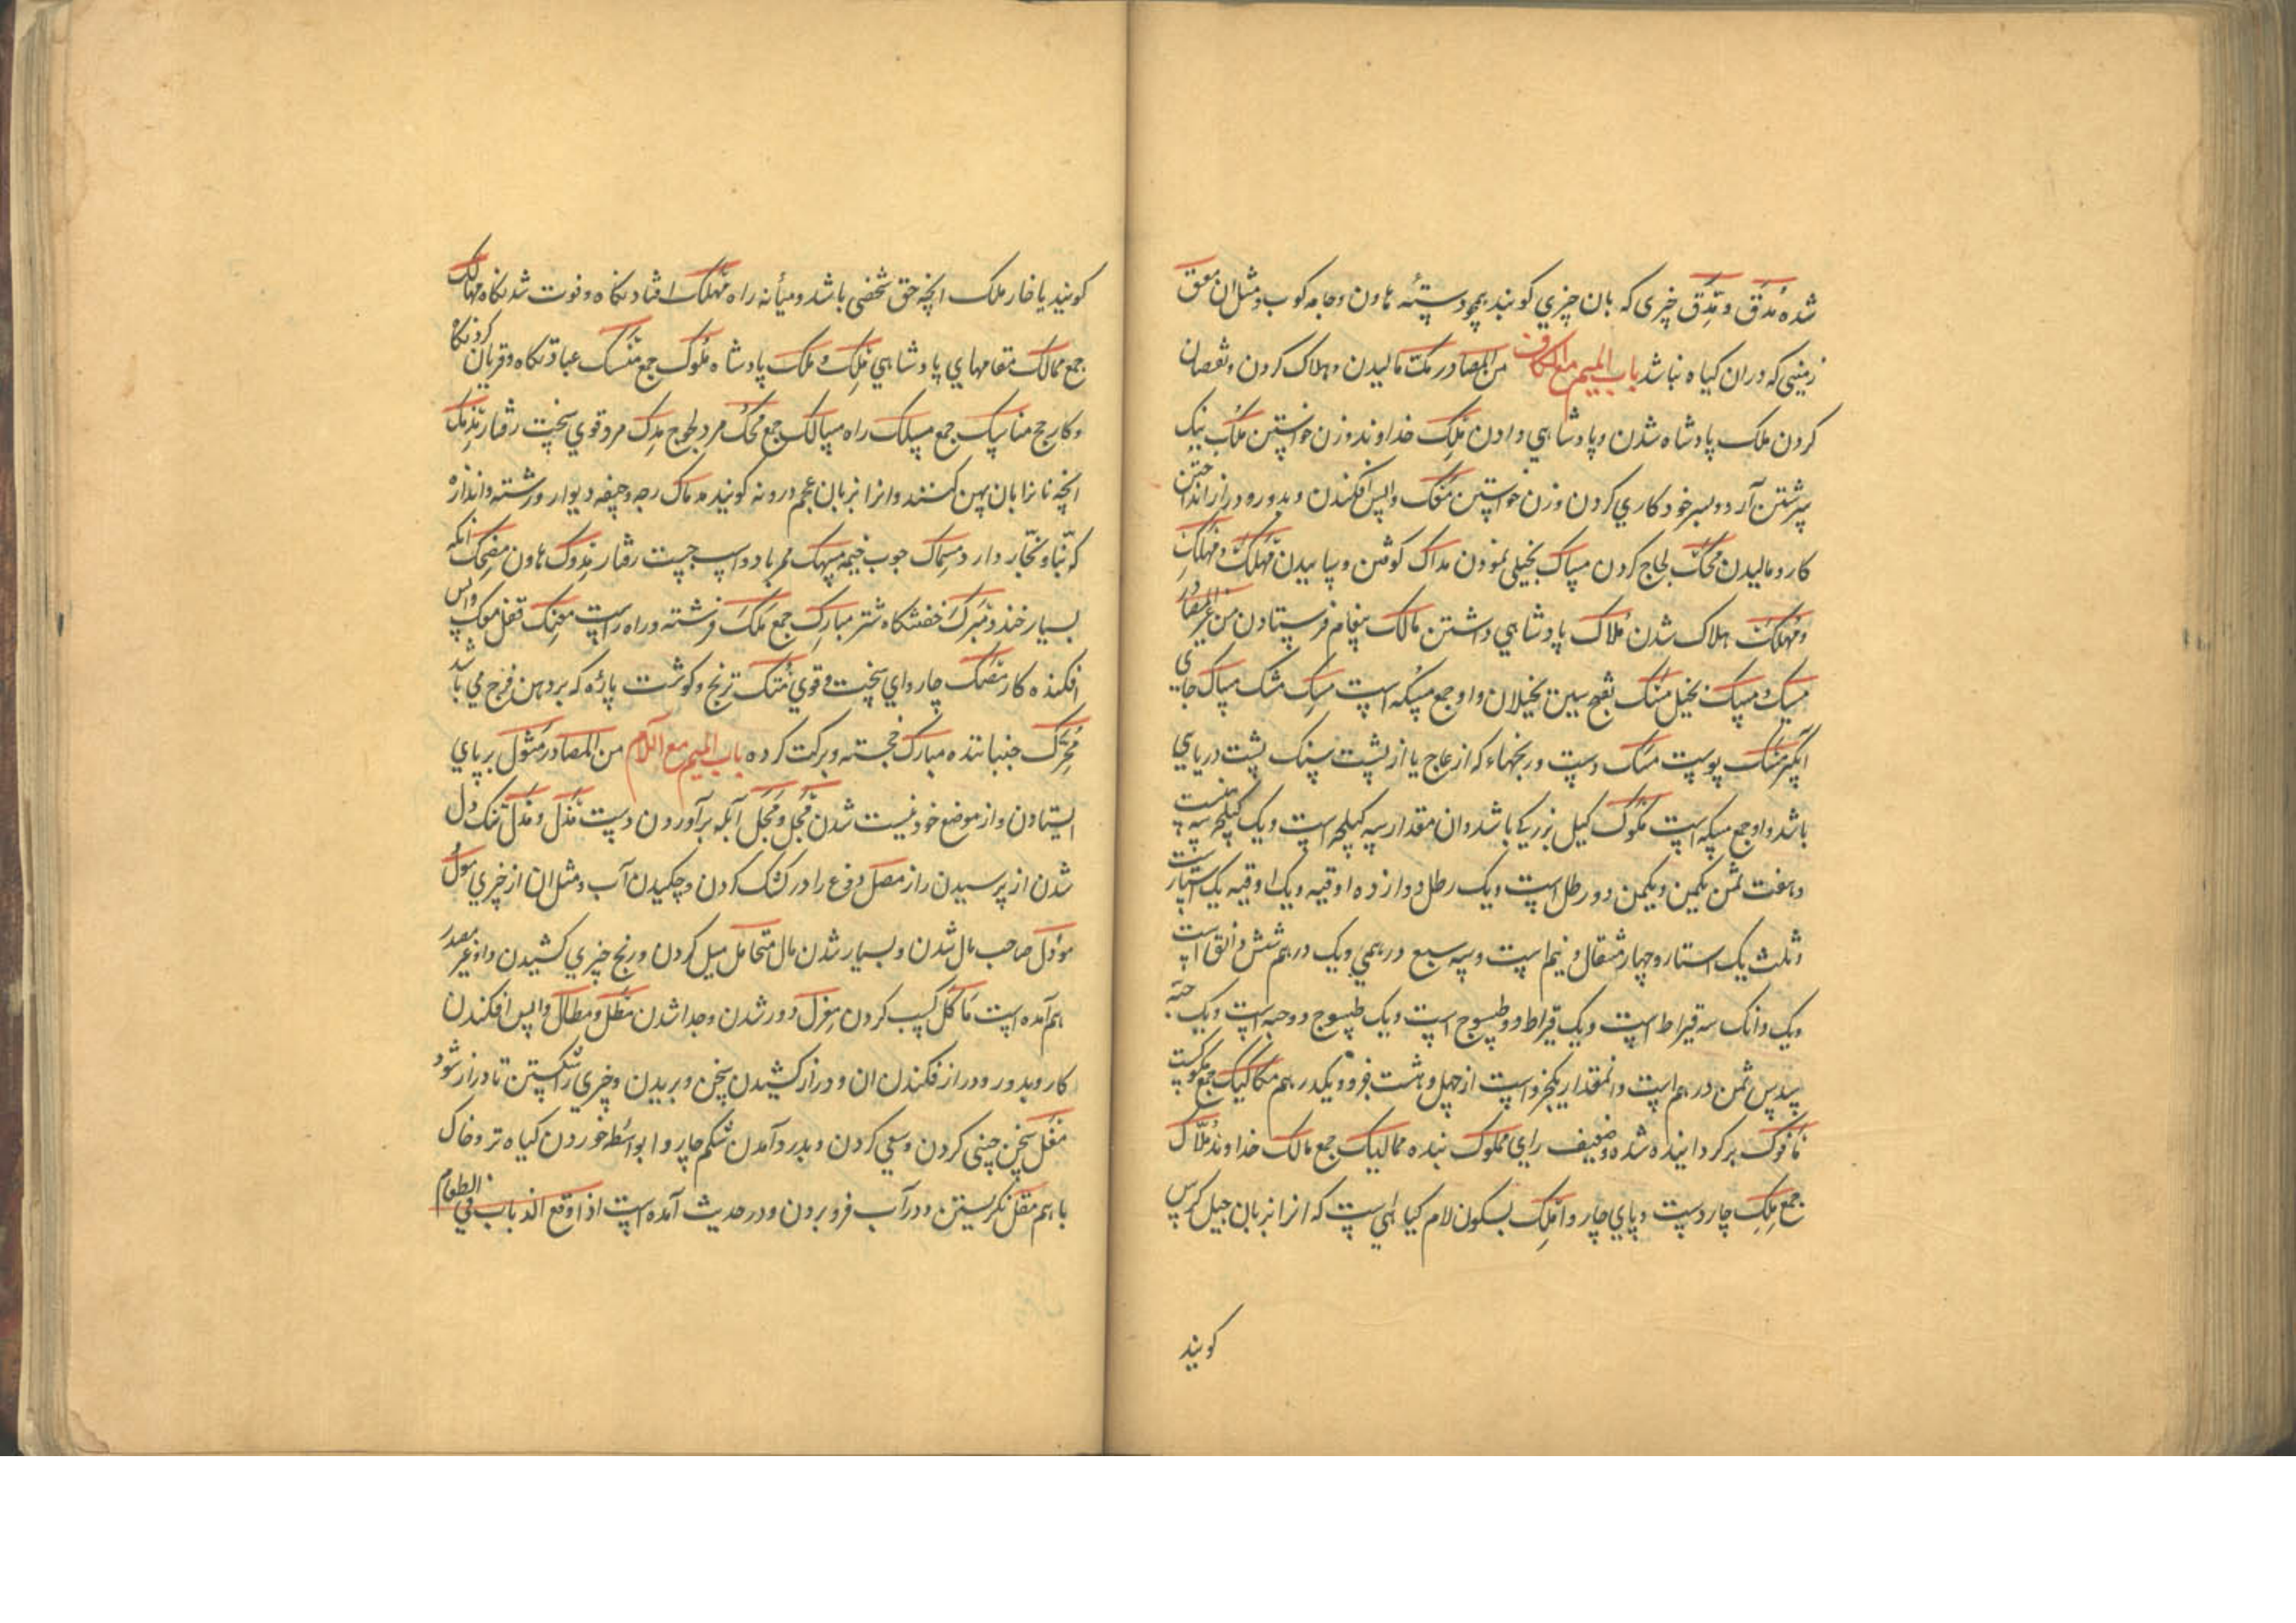 شده مُدَق و مِدَق چیزی که بان چیزي کوبند همچو دسته هاون و جامه کوب و مثل ان معق
زمینی که دران کیاه نباشد باب المیم مع الکاف من المصادر مک مالیدن و هلاک کردن و نقصان
کردن ملک پادشاه شدن و پادشاهي دادن مِلک خداوند و زن خواستن ملک نیک
سرشتن آرد و بسر خود کاري کردن و زن خواستن مَعک واپس افکندن و بدور و دراز انداختن
کار و مالیدن مَحک لجاج کردن مساک بخیلی نمودن مداک کوفتن و ساییدن مَهلَک و مَهلِک
و مَهلُک هلاک شدن مَلاک پادشاهي داشتن مالک پیغام فرستادن من غیر المصادر
مسیک و مسک بخیل مُسُک بخیلان و او جمع مسکه است مِسک مشک مساک جای
آبگیر مَسک پوست مَسَک دست ورنجنهاء که از عاج یا از پشت سنک پشت دریایی
باشد و او جمع مسکه است مَکّوک کیل بزرکی باشد و ان مقدار سه کیلجه است و یک کیلجه
و هفت ثمن یکمن و یکمن دو رطل است و یک رطل دوازده اوقیه و یک اوقیه یک استار
و ثلث یک استار و چهار مثقال و نیم است و سه سبع درهمي و یک درهم شش دانق است
و یک دانک سه قیراط است و یک قیراط دو طسوج است و یک طسوج دو حبه است و یک حبه
سدس ثمن درهم است و انمقدار یکجزو است از چهل و هشت جزو و یکدرهم مکاکیک جمع مکوکست
مَافوک برکردانیده شده و ضعیف رای مملوک بنده ممالیک جمع مالک خداوند مُلّاک
جمع مِلِک چار دست و پاي چاروا مُلک بسکون لام کیاهي است که انرا بزبان جیل کرس
کویند
کویند یا خار ملک انچه حق شخصی باشد و میانه راه مَهلک افتادنکاه و فوت شدنکاه مهالک
جمع ممالک مقامهاي پادشاهي مَلِک و مَلک پادشاه مُلوک جمع مَنسک عبادتکاه و قربان کردنکاه
و کار حج مناسک جمع مسلک راه مسالک جمع مَحک مرد لجوج مِدک مرد قوي سخت رفتار
انچه نانرا بان پهن کنند و انرا بزبان عجم وردنه کویند مدماک رجه و چینه دیوار و رشته و اندازه
که بنّا و نجّار دارد مِسماک چوب خیمه مِسهک ممر باد و اسب چست رفتار مِدوک هاون مضحک انکه
بسیار خندد مَبرَک خفتنکاه شتر مبارک جمع مَلَک فرشته و راه راست
افکنده کار چارواي سخت و قوي مُتک ترنج و کوشت پاره که بر دهن فرج می باشد
مُحرِّک جنباننده مبارک خجسته و برکت کرده باب المیم مع اللام من المصادر مُثول بر پاي
ایستادن و از موضع خود نیست شدن مَجل و مَجَل آبله برآوردن دست مَذَل و مَذل تنک دل
شدن از پرسیدن راز مصل دوغ را در کشک کردن و چکیدن آب و مثل ان از چیزي
مال شدن و بسیار شدن مال متحامل میل کردن و رنج چیزي کشیدن و او غیر مصدر
هم آمده است مَاکل کسب کردن معزل دور شدن و جدا شدن مَطل و مطال واپس افکندن
کار و بدور و دراز فکندن ان و دراز کشیدن سخن و بریدن و چیزي را شکستن تا دراز شود
مَغل سخن چینی کردن و سعي کردن و بدرد آمدن شکم چاروا بواسطه خوردن کیاه تر و خاک
با هم مقل نکریستن و در آب فرو بردن و در حدیث آمده است اذا وقع الذباب في الطعام